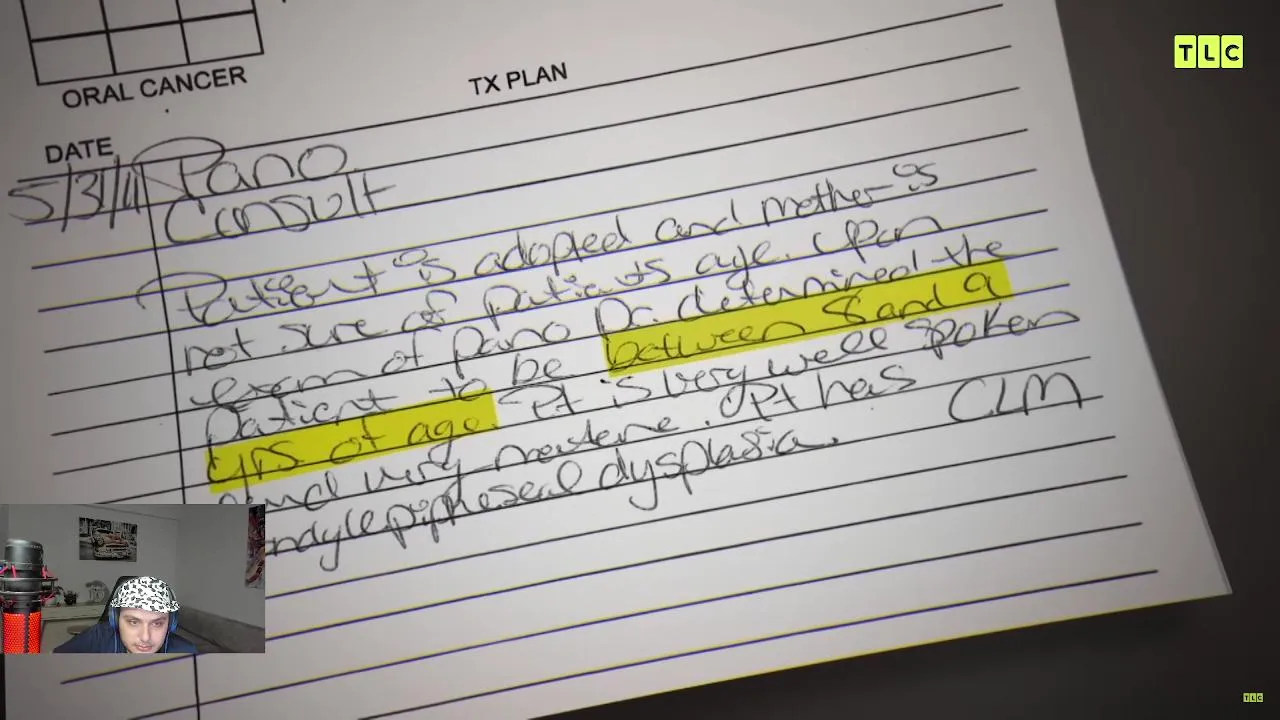 TLC
ORAL CANCER
TX PLAN
DATE
5/31/11 Pano
Consult
Patient is adopted and mother is
not sure of patients age. Upon
exam of pano Dr. determined the
patient to be between 8 and 9
yrs of age. Pt is very well spoken
and very mature. Pt has
ndylepipheseal dysplasia. CLM
TLC